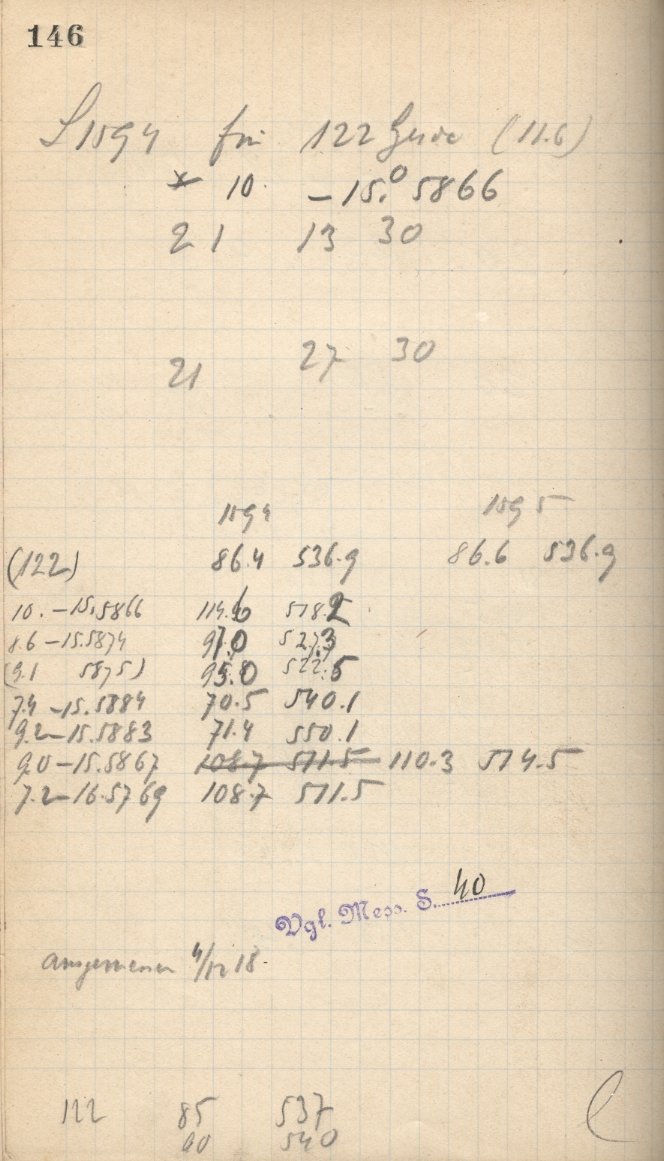 146
S 1594 für 122 Gerda (11.6)
* 10. -15.°5866
21 13 30
21 27 30
1594 1595
(122) 86.4 536.9 86.6 536.9
10. -15.5866 114.6 518.2
8.6 -15.5874 97.0 527.3
(9.1 5875) 95.0 522.5
7.4 -15.5884 70.5 540.1
9.2 -15.5883 71.4 550.1
9.0 -15.5867 108.7 511.5 110.3 514.5
7.2 -16.5769 108.7 511.5
Vgl. Mess. S. 40
ausgemessen 4/12 18.
122 85 537
90 540